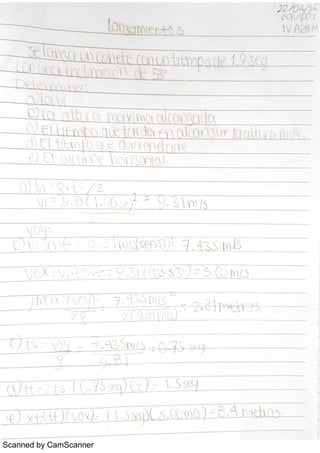 22/04/16
equipo:
IV AZHM
Lanzamiento 5
Se lanza un cohete con un tiempo de 1.9 seg
con una inclinación de 53°
Determinar:
a) la vi
b) La altura maxima alcanzada
c) El tiempo que tarda en alcanzar la altura max.
d) El tiempo que dura en el aire
e) El alcance horizontal
a) Vi = g · t / 2
Vi = 9.8 (1.90 s) = 9.31 m/s
2
Voy=
Vi sen = 9.31 m/s (sen 53) = 7.435 m/s
Vox = Vi · cos = 9.31 (cos 53°) = 5.60 m/s
Ymax = (voy)² = 7.435 m/s² = 2.81 metros
2g 2 (9.81 m/s)
c) ts = voy = 7.435 m/s = 0.75 seg
g 9.81
d) tt = 2ts (0.75 seg) (2) = 1.5 seg
e) x = (tt) (vox) = (1.5 seg) (5.60 m/s) = 8.4 metros
Scanned by CamScanner